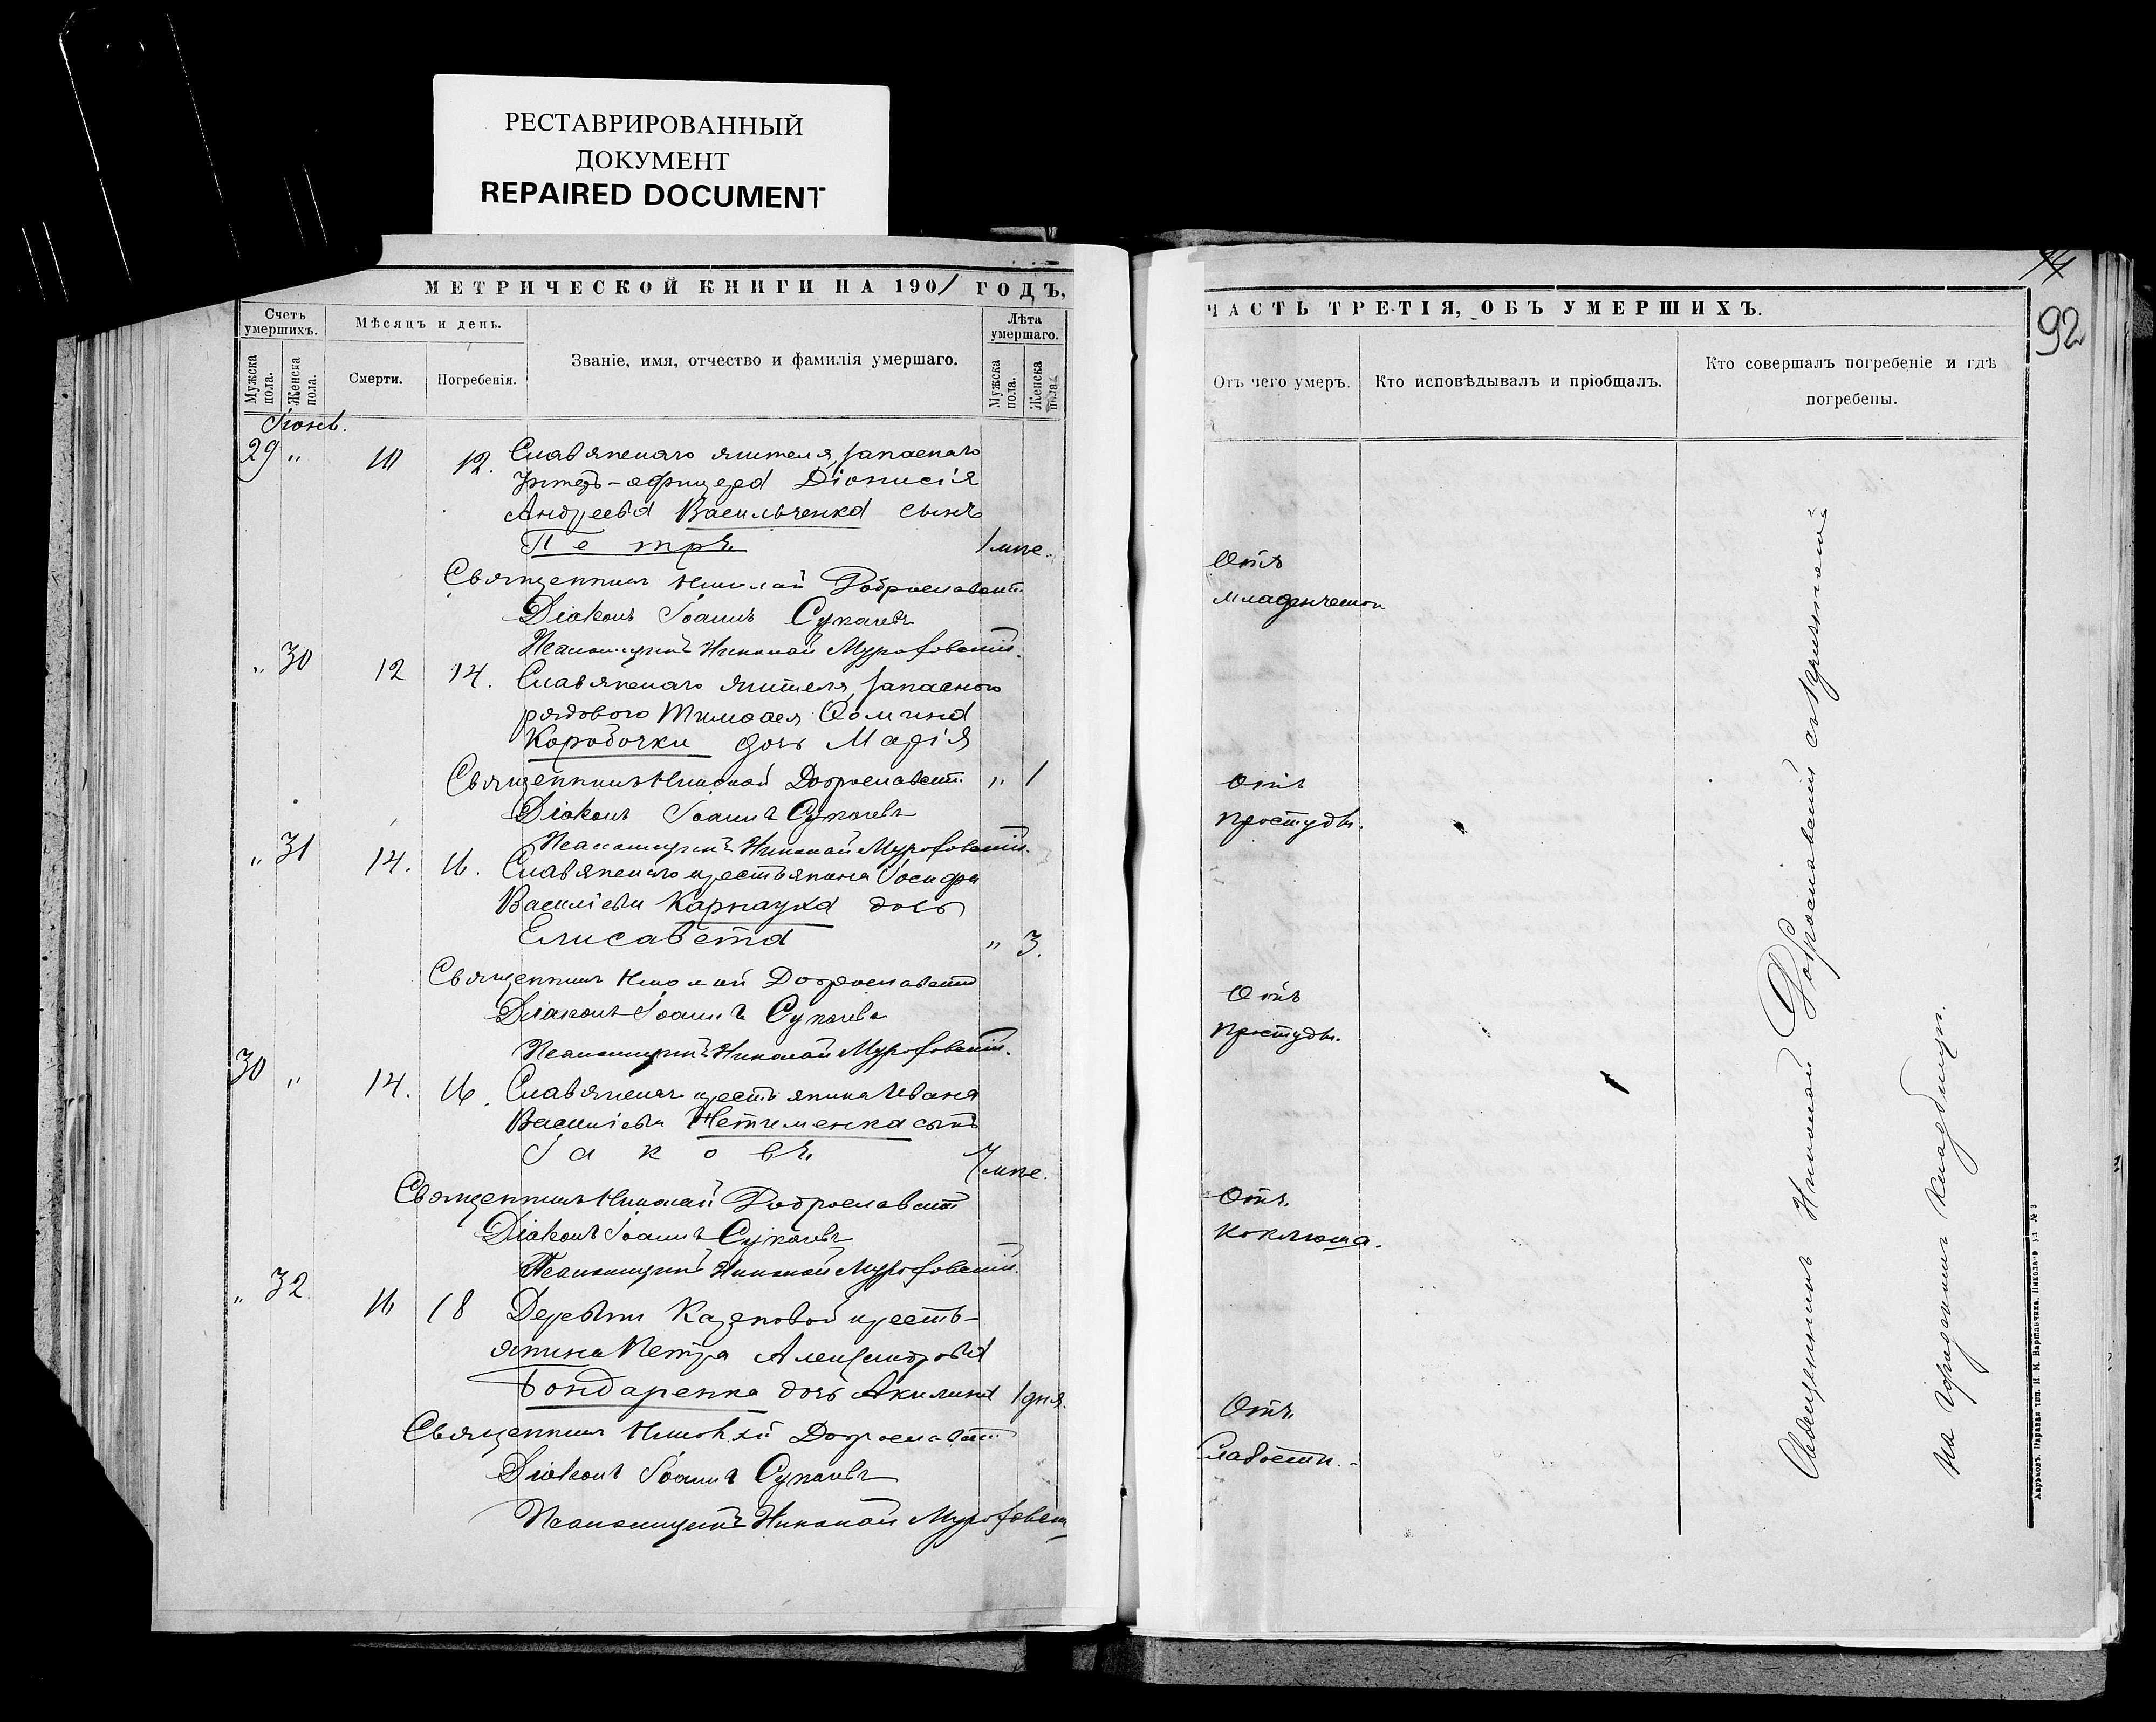 РЕСТАВРИРОВАННЫЙ
ДОКУМЕНТ
REPAIRED DOCUMENT
МЕТРИЧЕСКОЙ КНИГИ НА 1901 ГОДЪ,
Счетъ умершихъ.
Мѣсяцъ и день.
Званіе, имя, отчество и фамилія умершаго.
Лѣта умершаго.
Мужска пола.
Женска пола.
Смерти.
Погребенія.
Мужска пола.
Женска пола.
Іюнь.
29 " 12. Славянскаго жителя, запаснаго
унтеръ-офицера Діонисія
Андреева Васильченка сынъ
Петръ 1 мѣс.
Священникъ Николай Доброславскій
Діаконъ Іоаннъ Сукачевъ
Псаломщикъ Николай
" 30 12 14. Славянскаго жителя, запаснаго
рядового Тимоѳея Ѳомина
Коробочки дочь Марія
Священникъ Николай Доброславскій " 1
Діаконъ Іоаннъ Сукачевъ
Псаломщикъ Николай
" 31 14. 16. Славянскаго крестьянина Іосифа
Василіева Карнауха дочь
Елисавета " 3.
Священникъ Николай Доброславскій
Діаконъ Іоаннъ Сукачевъ
Псаломщикъ Николай
30 " 14. 16. Славянскаго крестьянина Ивана
Василіева сынъ
Іаковъ 7 мѣс.
Священникъ Николай Доброславскій
Діаконъ Іоаннъ Сукачевъ
Псаломщикъ Николай
" 32. 16 18 Деревни Казенной кресть-
янина Петра Александрова
Бондаренка дочь Акилина 1 дня.
Священникъ Николай Доброславскій
Діаконъ Іоаннъ Сукачевъ
Псаломщикъ Николай
ЧАСТЬ ТРЕТІЯ, ОБЪ УМЕРШИХЪ.
92
Отъ чего умеръ.
Кто исповѣдывалъ и пріобщалъ.
Кто совершалъ погребеніе и гдѣ
погребены.
Отъ
младенческой
Отъ
простуды.
Отъ
простуды.
Отъ
коклюша.
Отъ
слабости.
Священникъ Николай Доброславскій съ причтомъ
на городскомъ кладбищѣ.